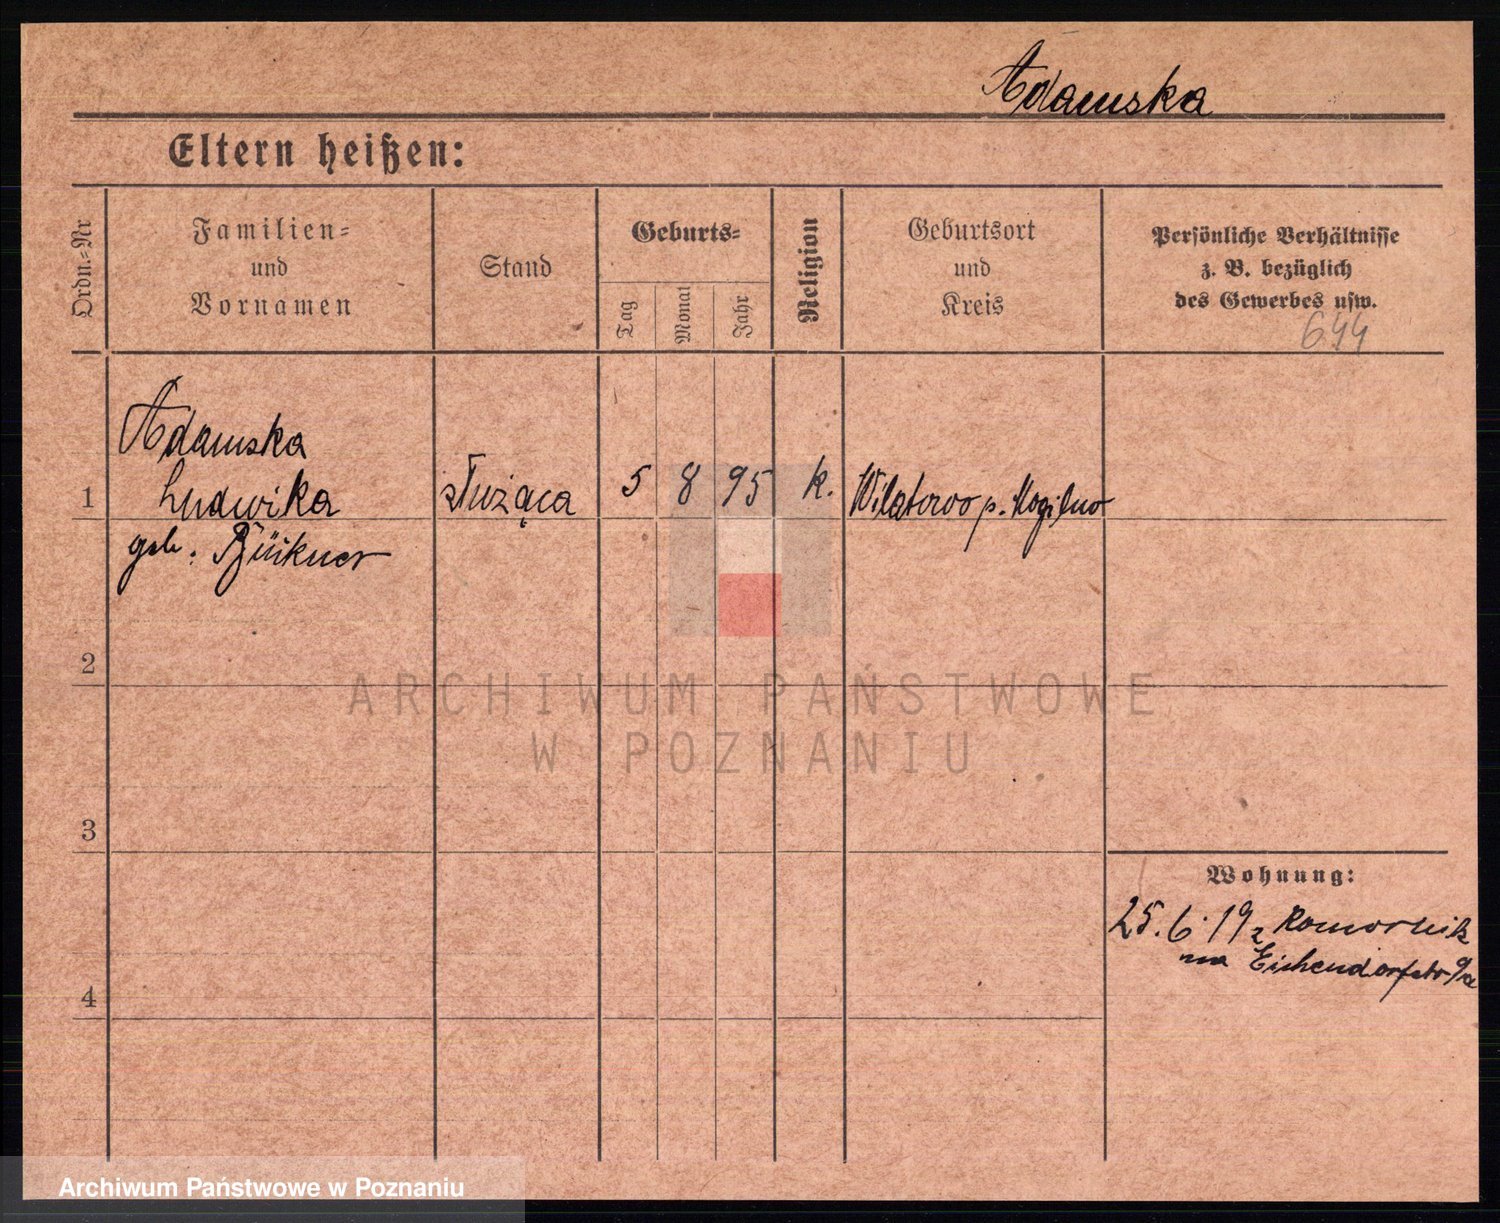 Adamska
Eltern heißen:
Ordn.-Nr
Familien-
und
Vornamen
Stand
Geburts-
Tag
Monat
Jahr
Religion
Geburtsort
und
Kreis
Persönliche Verhältnisse
z. B. bezüglich
des Gewerbes usw.
644
Adamska
1 Ludwika służąca 5 8 95 k. Wilatowo p. Mogilno
geb.
2
3
4
Wohnung:
25.6.19 z Komornik
na Eichendorfstr 9a
ARCHIWUM PAŃSTWOWE
W POZNANIU
Archiwum Państwowe w Poznaniu